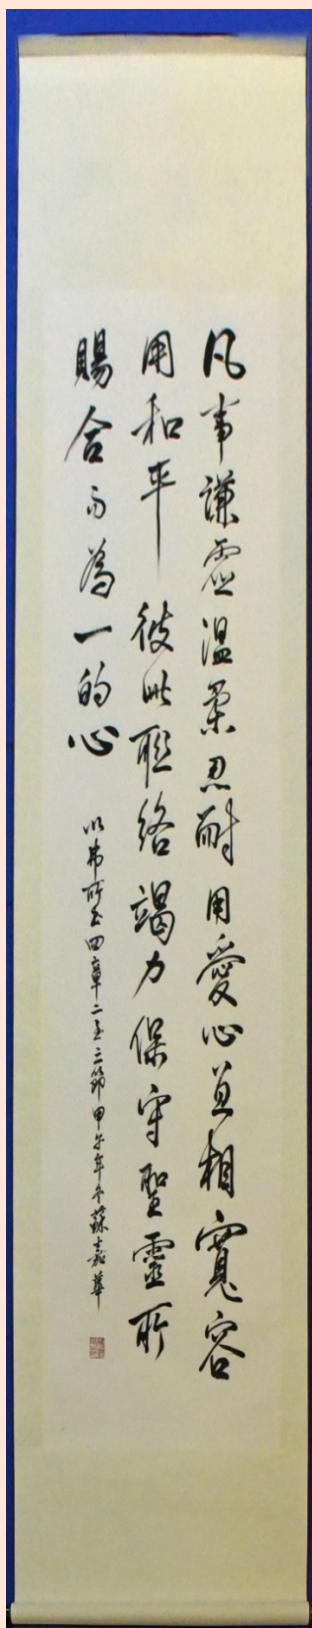 凡事謙虛溫柔忍耐用愛心互相寬容
用和平彼此聯絡竭力保守聖靈所
賜合而為一的心
以弗所书四章二至三節甲午年冬蘇嘉華